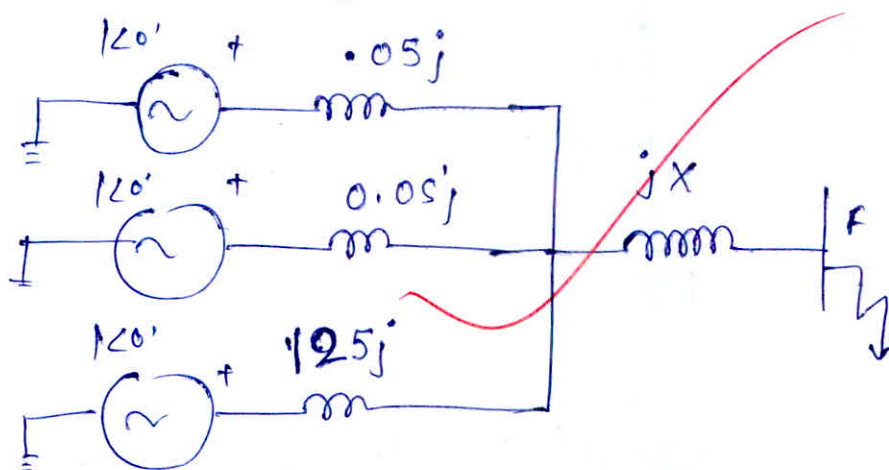 1<0° +
.05j
1<0° +
0.05j
jX
F
1<0° +
.125j